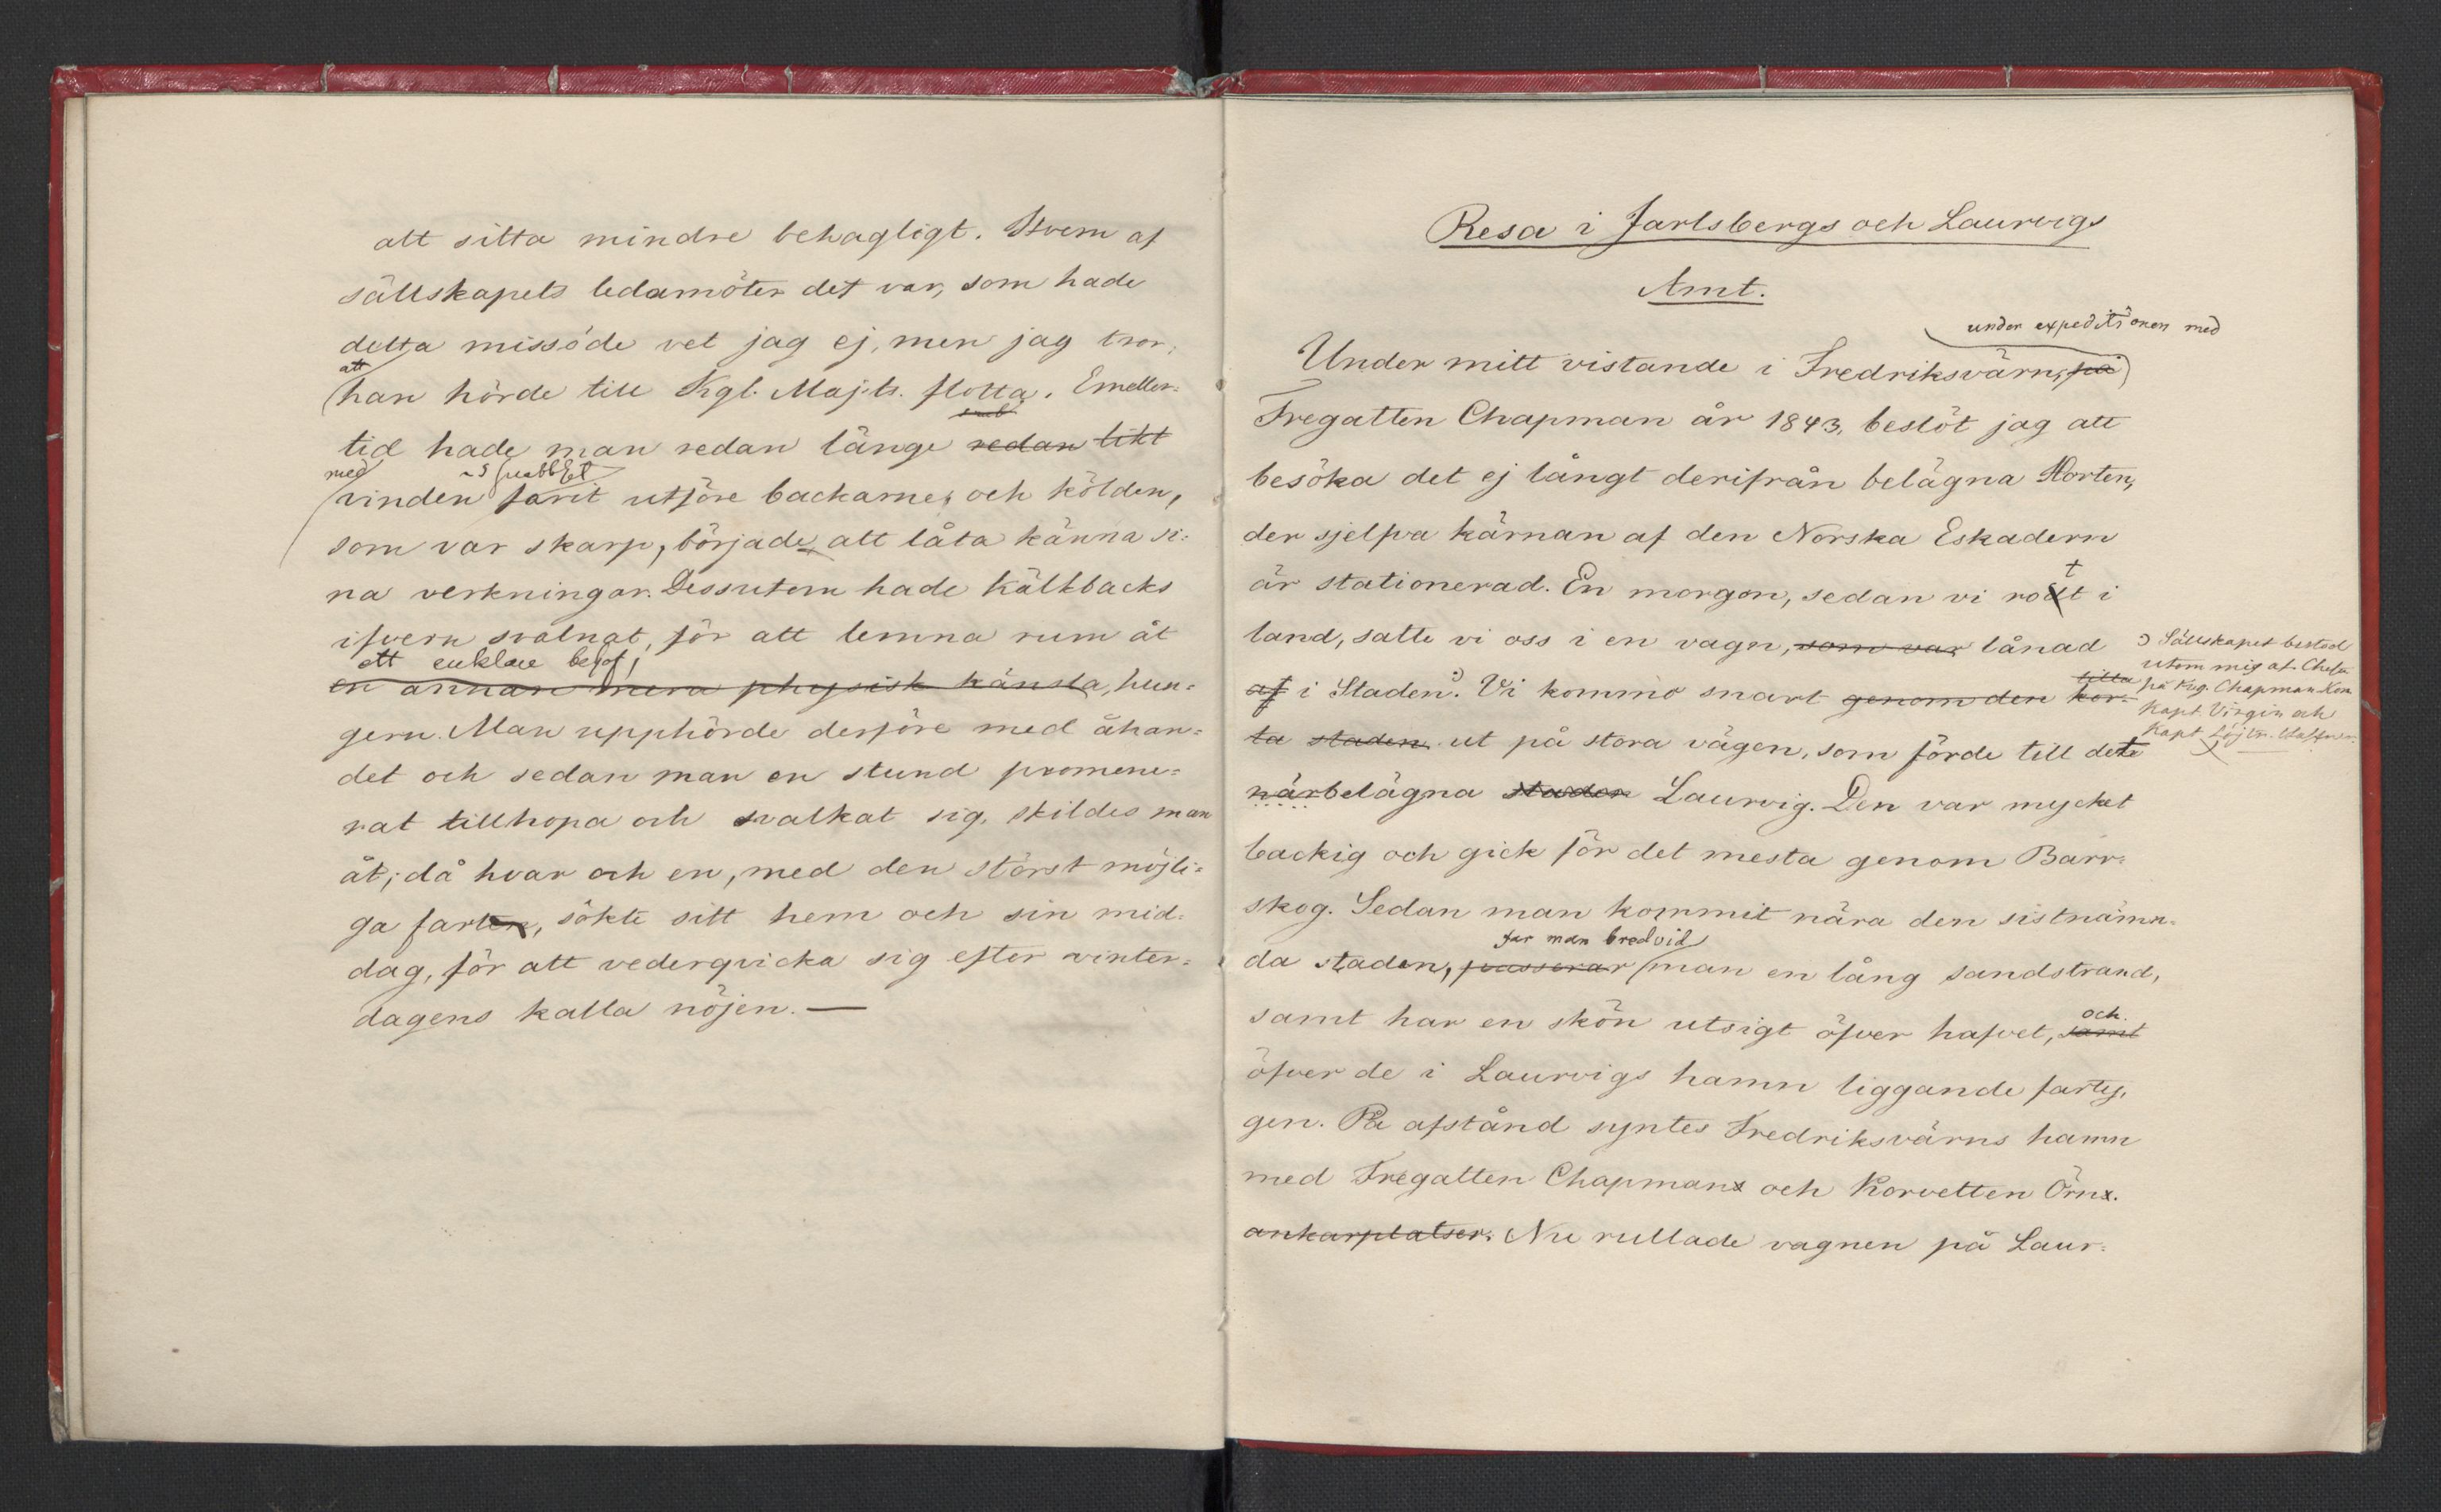 att sitta mindre behagligt. Hvem af
sällskapets ledamöter det var, som hade
detta missöde vet jag ej, men jag tror,
att
han hörde till Kgl. Majts. flotta. Emeller=
tid hade man redan länge redan likt
med vindens snabbhet farit utföre backarne, och kölden,
som var skarp, började att låta känna si=
na verkningar. Dessutom hade kälkbacks
ifvern svalnat, för att lemna rum åt
ett enklare behof,
en annan mera physisk känsla, hun=
gern. Man upphörde derföre med åkan=
det och sedan man en stund promene=
rat tillhopa och svalkat sig, skildes man
åt; då hvar och en, med den störst möjli=
ga farten, sökte sitt hem och sin mid=
dag, för att vederqvicka sig efter vinter=
dagens kalla nöjen. —
Resa i Jarlsbergs och Laurvigs
Amt.
under expeditionen med
Under mitt vistande i Fredriksvärn, på
Fregatten Chapman år 1843, beslöt jag att
besöka det ej långt derifrån belägna Horten,
der sjelfva kärnan af den Norska Eskadern
är stationerad. En morgon, sedan vi rott i
land, satte vi oss i en vagn, som var lånad
af i Staden. Vi kommo snart genom den lilla kor=
ta staden ut på stora vägen, som förde till det
närbelägna staden Laurvig. Den var mycket
backig och gick för det mesta genom Barr=
skog. Sedan man kommit nära den sistnämn=
far man bredvid
da staden, passerar man en lång sandstrand,
och
samt har en skön utsigt öfver hafvet, samt
öfver de i Laurvigs hamn liggande farty=
gen. På afstånd syntes Fredriksvärns hamn
med Fregatten Chapmans och Korvetten Örns
ankarplatser. Nu rullade vagnen på Laur=
Sällskapet bestod
utom mig af Chefen
på Freg. Chapman Kom
Kapt. Virgin och
Kapt. Löjtn.